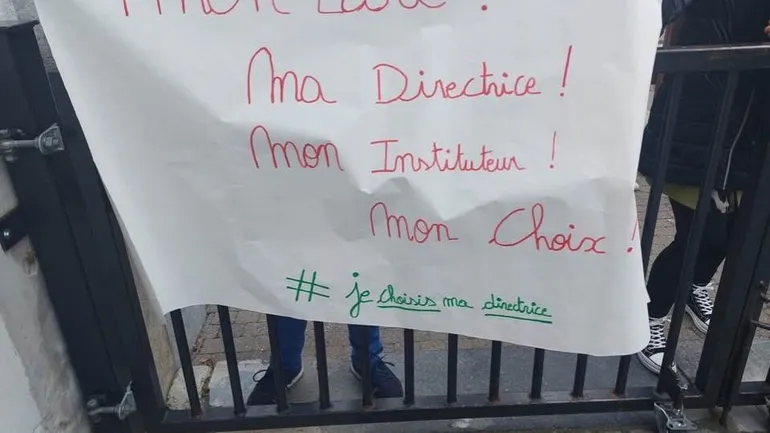 Mon École !
Ma Directrice !
Mon Instituteur !
Mon Choix !
# je choisis ma directrice